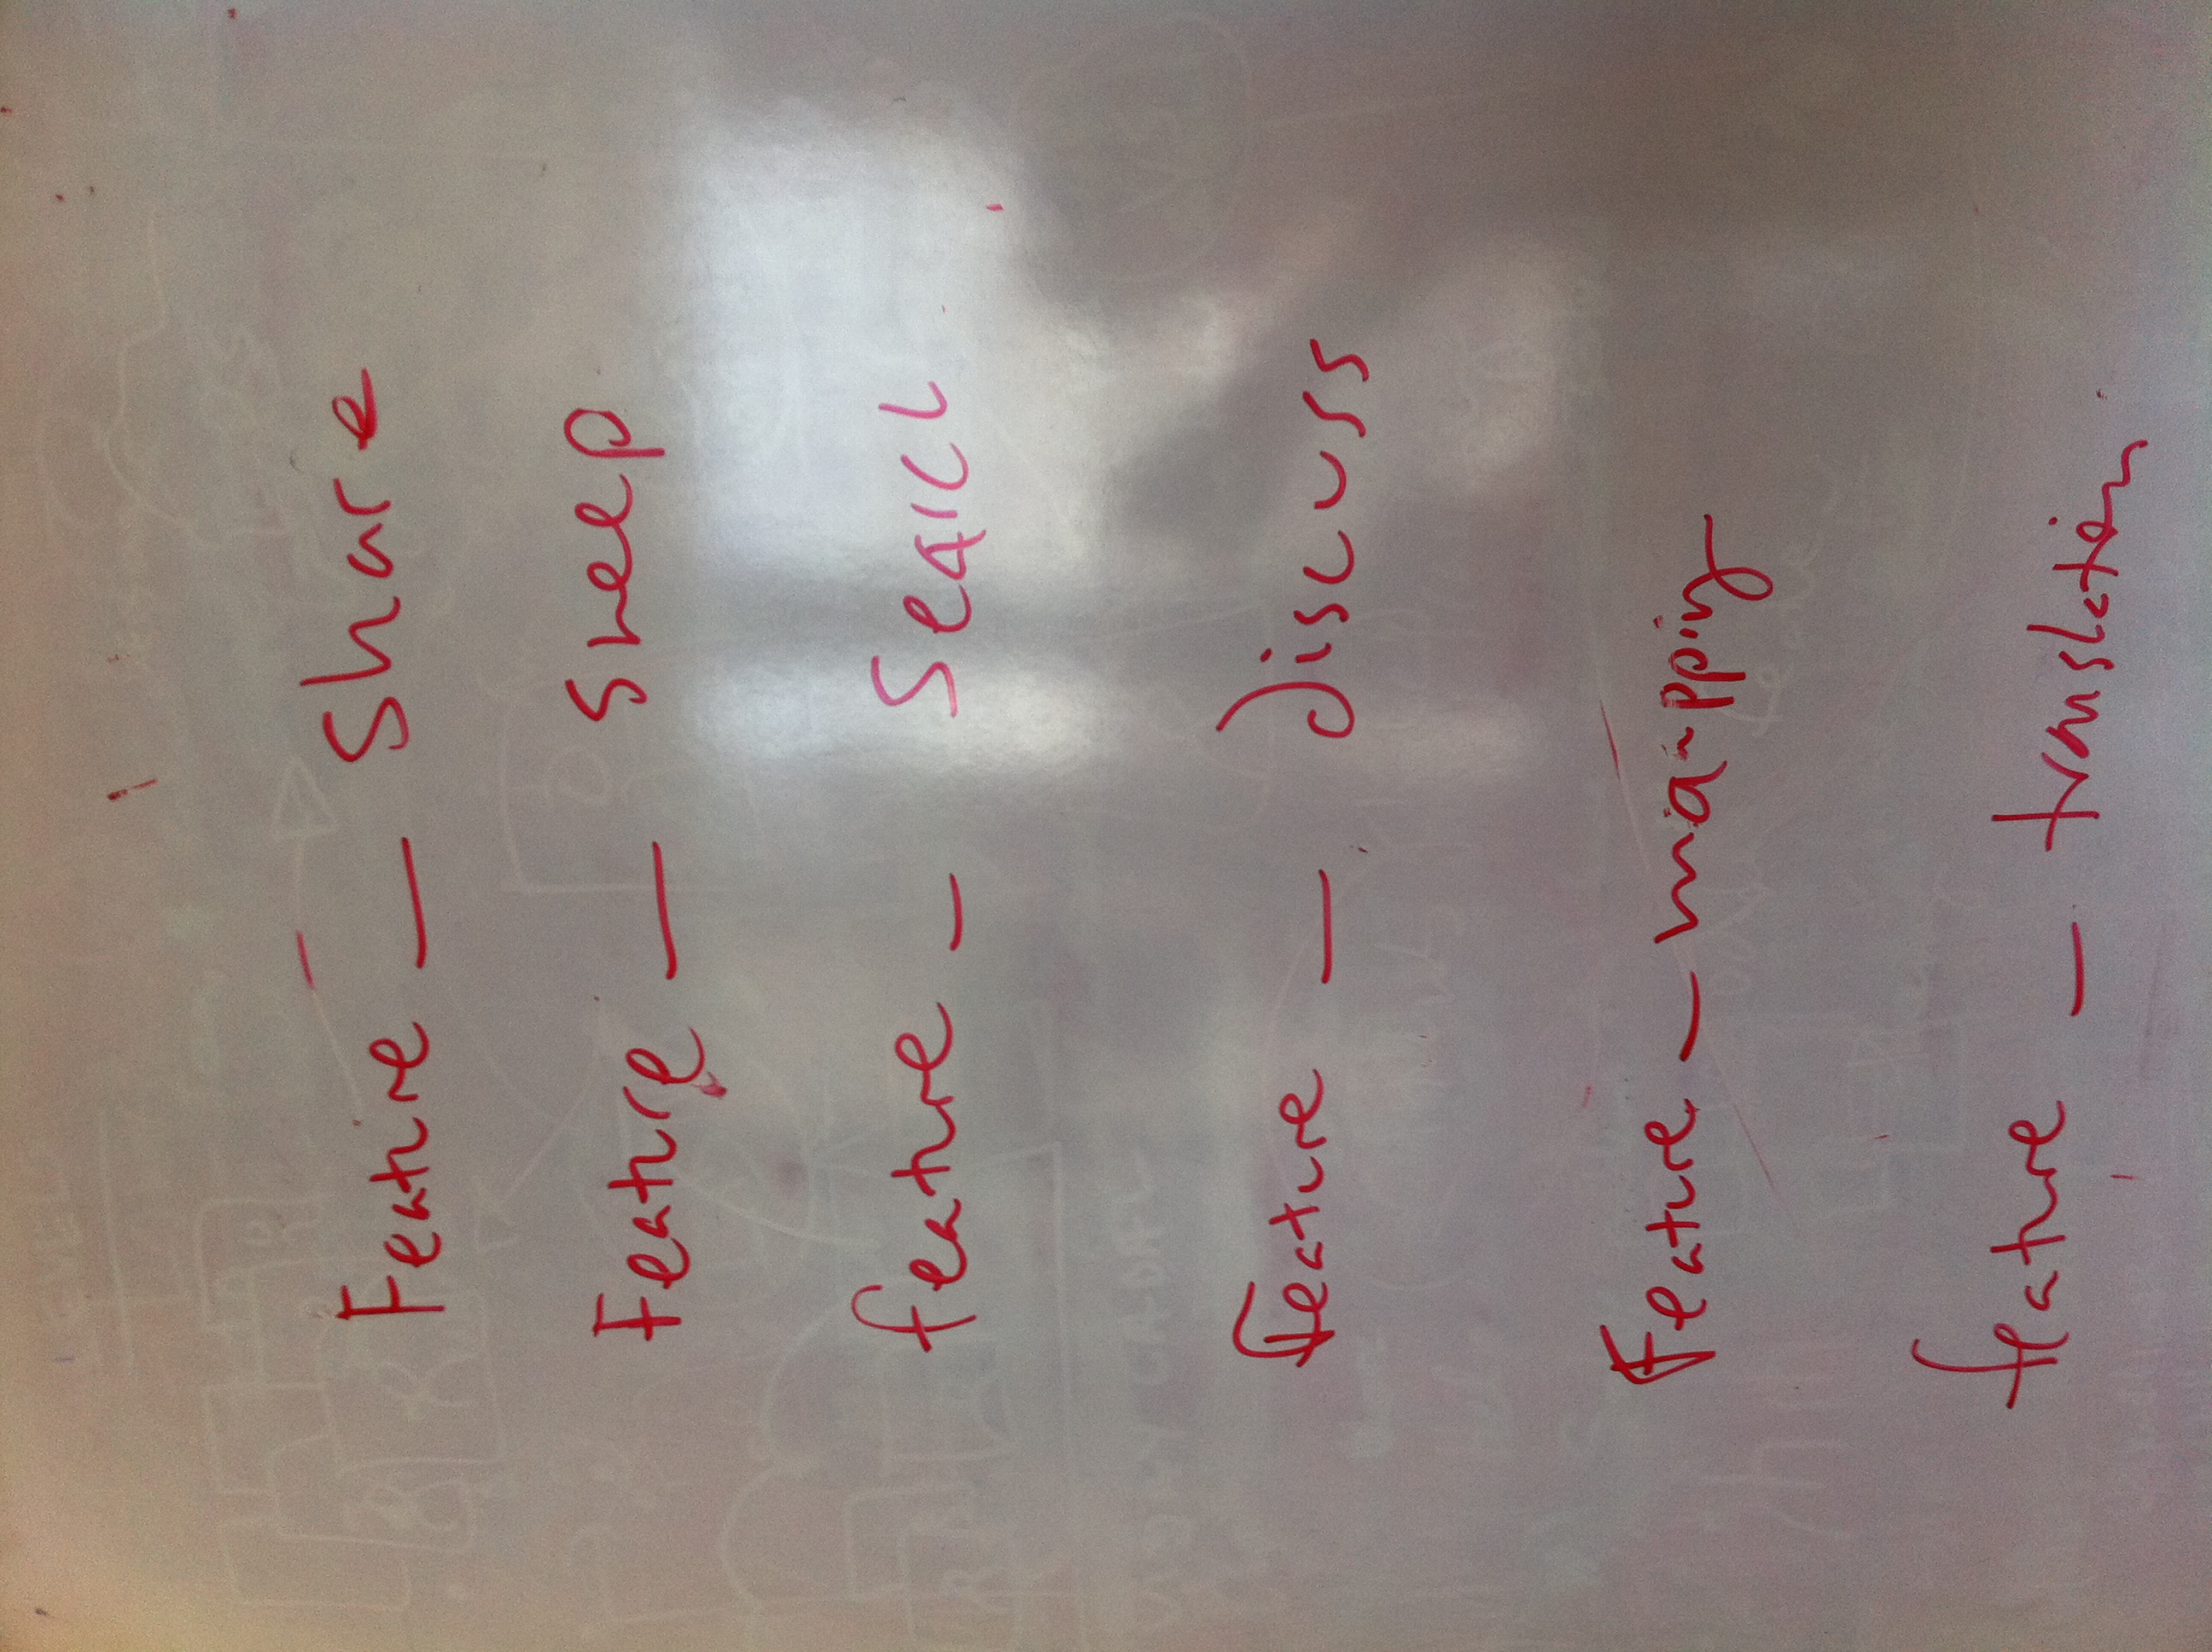 Feature _ share
Feature _ sweep
feature _ search
Feature _ discuss
Feature _ mapping
feature _ translation